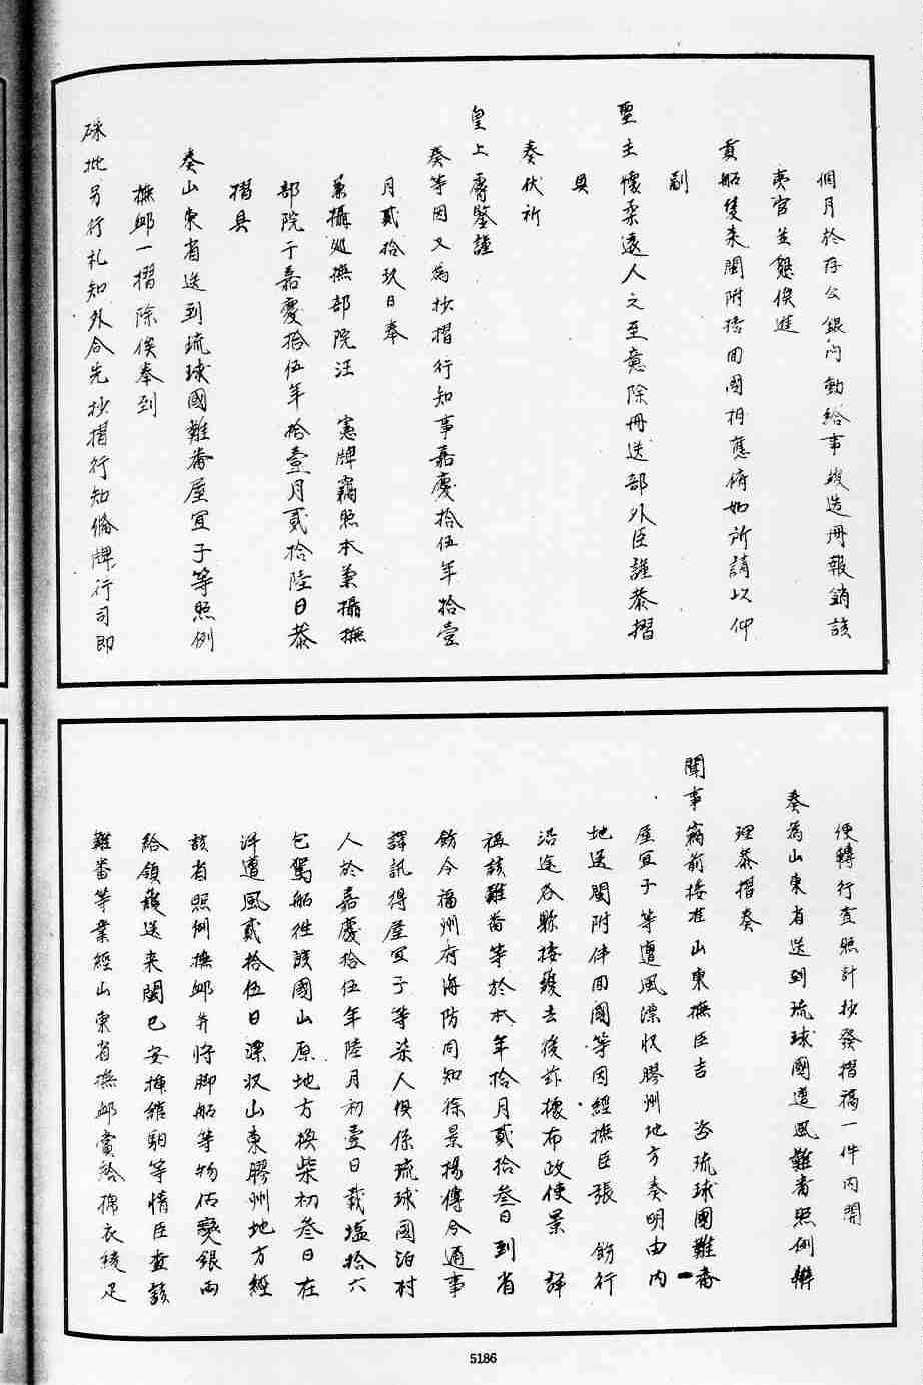 個月於存公銀內動給事竣造冊報銷該
夷官並懇俟進
貢船隻來閩附搭回國相應俯如所請以仰
副
聖主懷柔遠人之至意除冊送部外臣謹恭摺
具
奏伏祈
皇上睿鑒謹
奏等因又為抄摺行知事嘉慶拾伍年拾壹
月貳拾玖日奉
兼攝巡撫部院汪 憲牌竊照本兼攝撫
部院于嘉慶拾伍年拾壹月貳拾陸日恭
摺具
奏山東省送到琉球國難番屋宜子等照例
撫卹一摺除俟奉到
硃批另行札知外合先抄摺行知備牌行司即
便轉行查照計抄發摺稿一件內開
奏為山東省送到琉球國遭風難番照例辦
理恭摺奏
聞事竊前接准山東撫臣吉 咨琉球國難番
屋宜子等遭風漂收膠州地方奏明由內
地送閩附伴回國等因經撫臣張 飭行
沿途各縣接護去後茲據布政使景 詳
稱該難番等於本年拾月貳拾叁日到省
飭令福州府海防同知徐景揚傳令通事
譯訊得屋宜子等柒人俱係琉球國泊村
人於嘉慶拾伍年陸月初壹日載塩拾六
包駕船徃該國山原地方換柴初叁日在
洋遭風貳拾伍日漂收山東膠州地方經
該省照例撫卹并將脚船等物估變銀兩
給領護送來閩已安揷館驲等情臣查該
難番等業經山東省撫卹賞給棉衣綾足
5186